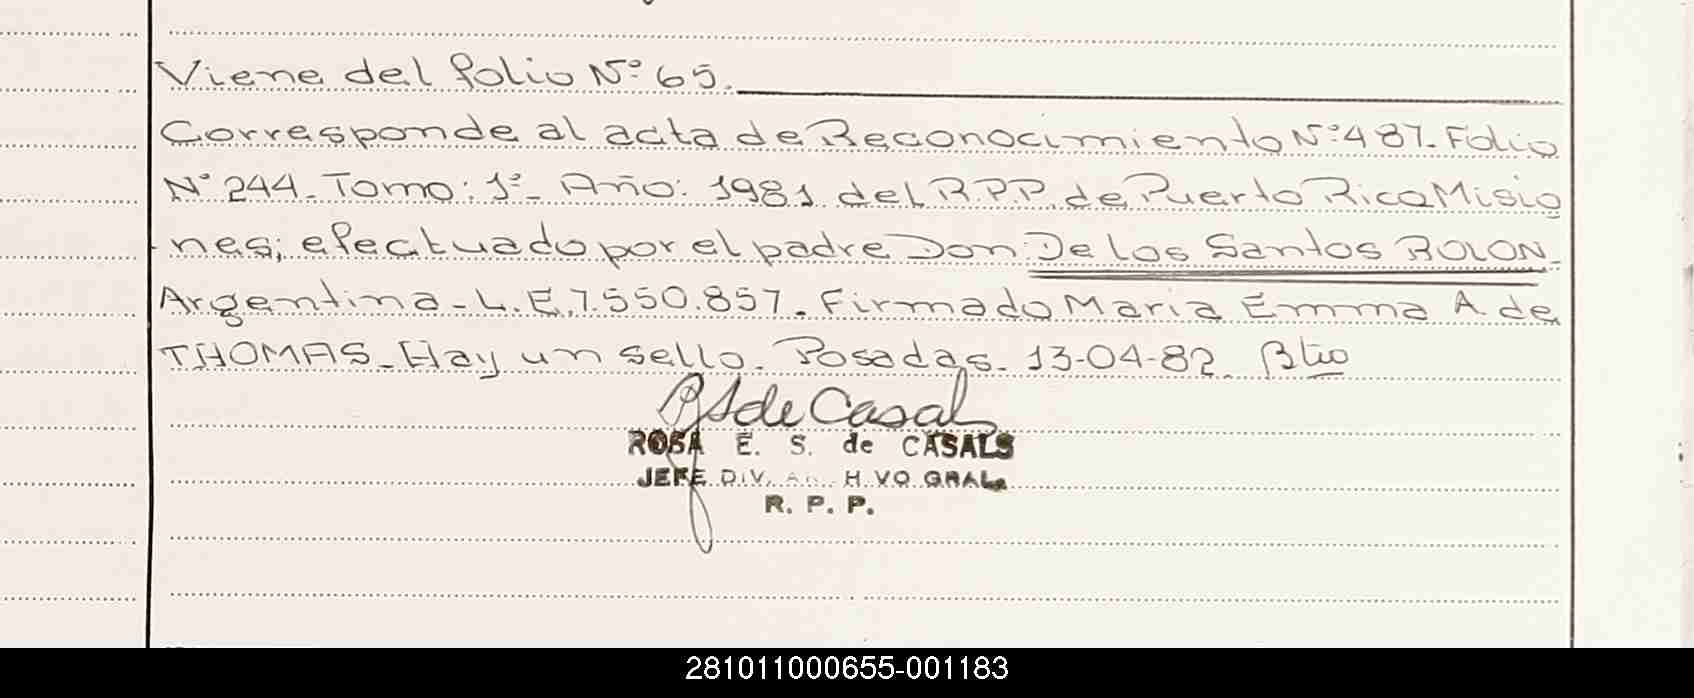 Viene del folio Nº 65.
Corresponde al acta de Reconocimiento Nº 487. Folio
Nº 244. Tomo: 1º- Año: 1981 del R.P.P. de Puerto Rico Misio
nes; efectuado por el padre Don: De los Santos ROLON.
Argentina - L.E. 7.550.857. Firmado Maria Emma A de
THOMAS. Hay un sello. Posadas. 13-04-82.
de Casals
ROSA E. S. de CASALS
JEFE DIV. GRAL.
R. P. P.
281011000655-001183